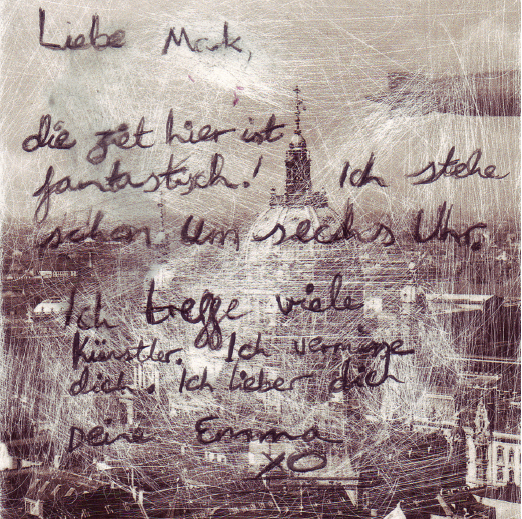 Liebe Mark,
die ziet hier ist
fantastisch! Ich stehe
schon um sechs Uhr.
Ich treffe viele
Künstler. Ich vermisse
dich. Ich lieber dich
Deine Emma
XO